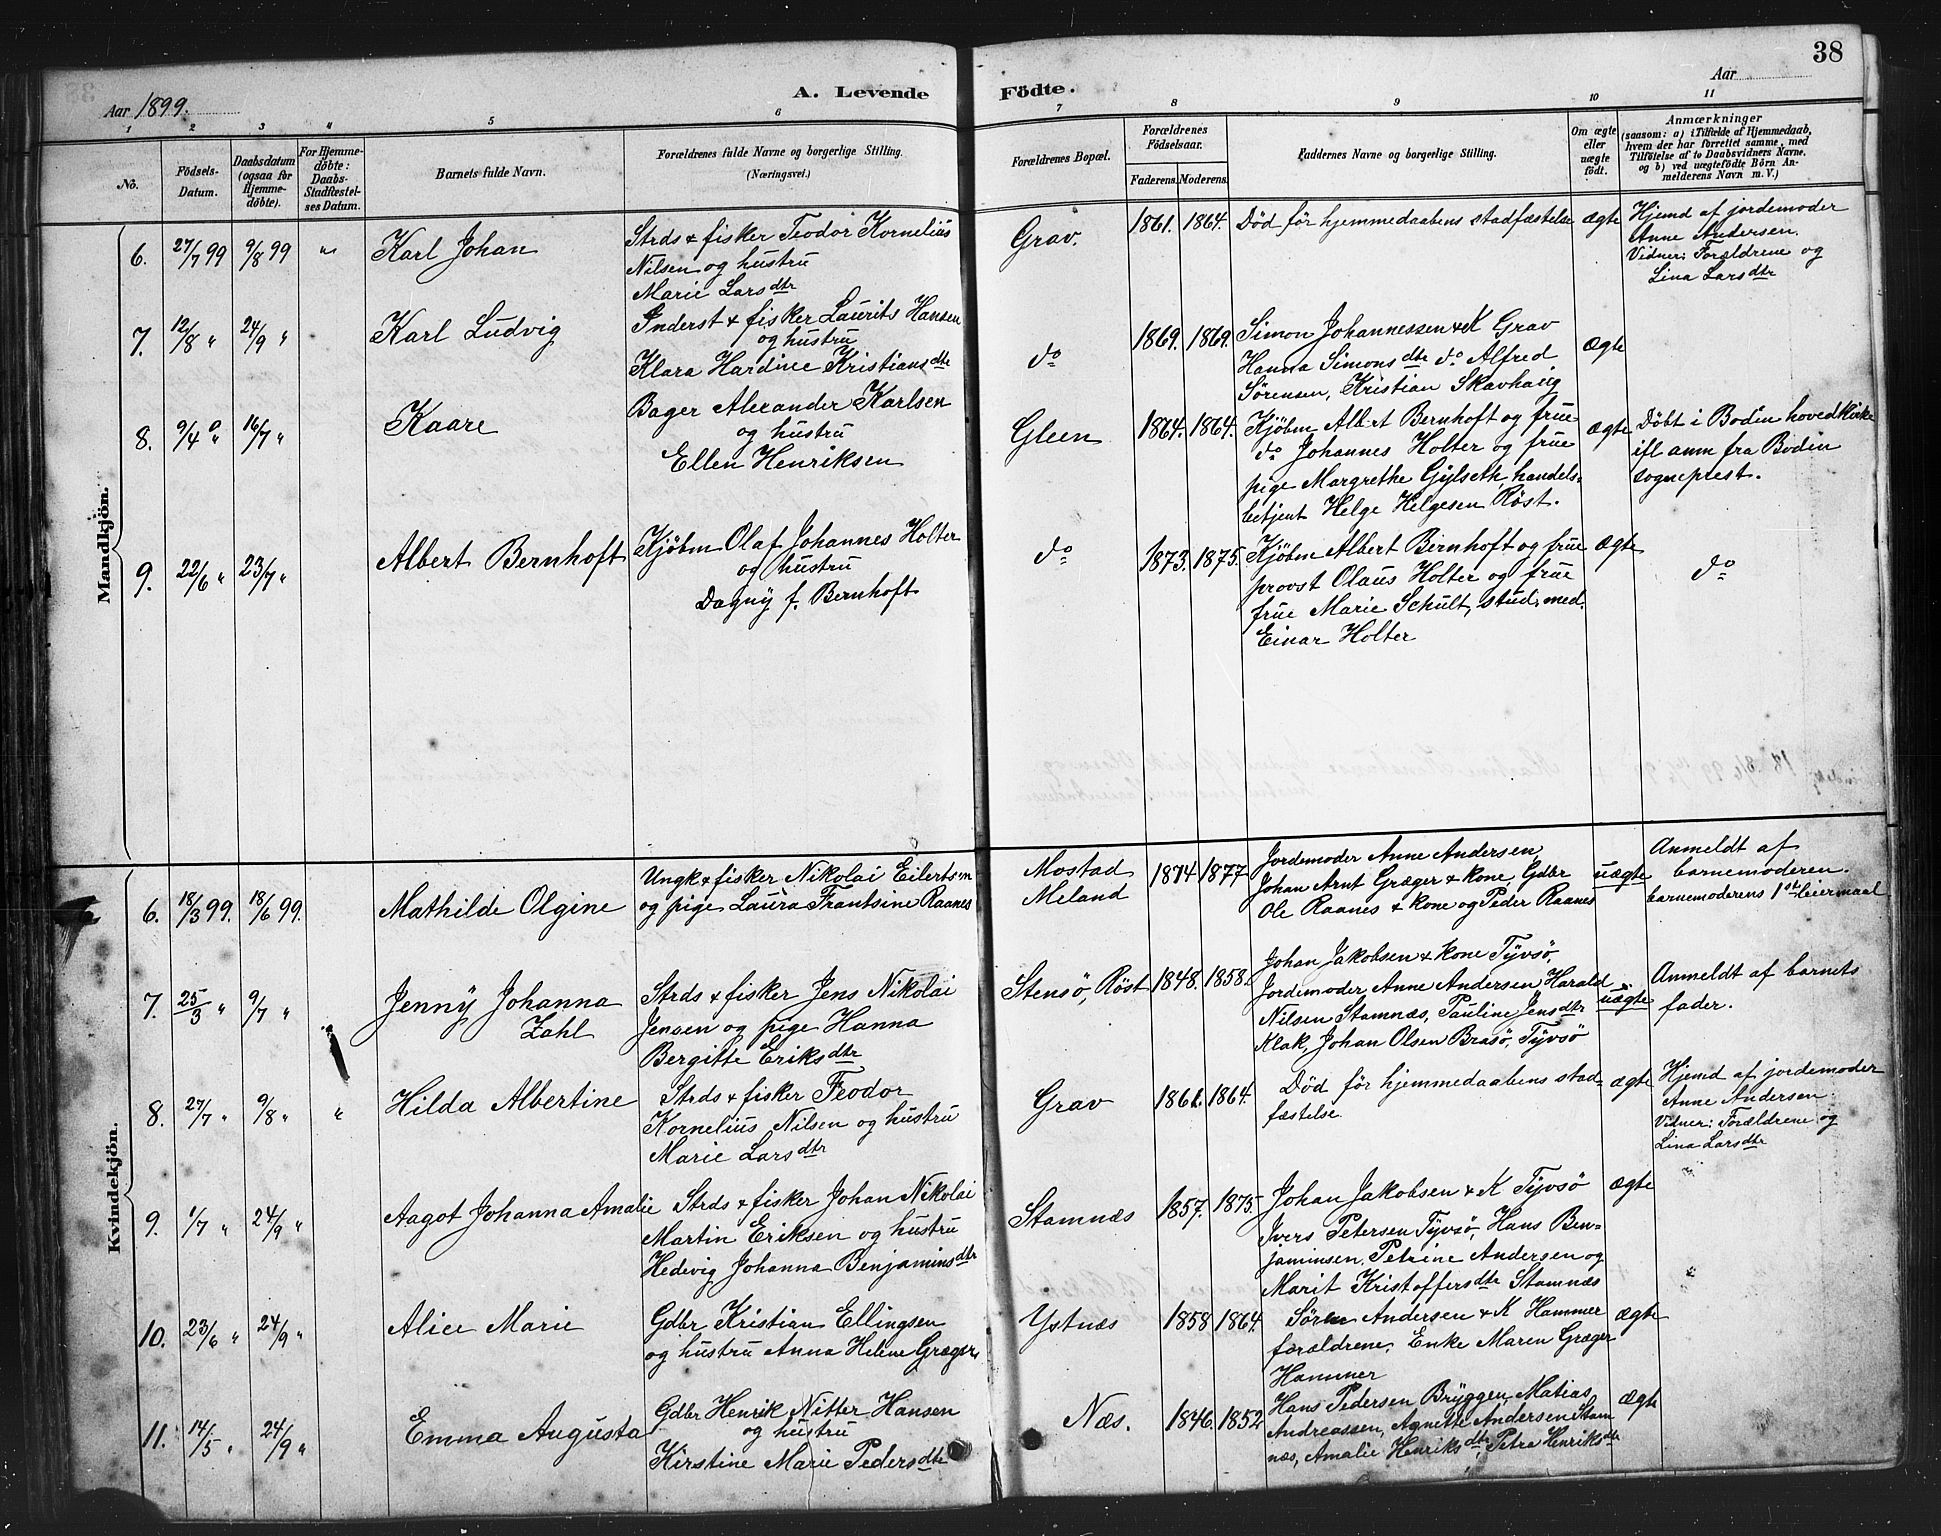 38
Aar 1899.
A. Levende Födte.
Aar
1 2 3 4 5 6 7 8 9 10 11
No.
Födsels-Datum.
Daabsdatum (ogsaa for Hjemme-döbte).
For Hjemme-döbte: Daabs-Stadfæstel-ses Datum.
Barnets fulde Navn.
Forældrenes fulde Navne og borgerlige Stilling.
(Næringsvei.)
Forældrenes Bopæl.
Forældrenes Födselsaar.
Faderens. Moderens.
Faddernes Navne og borgerlige Stilling.
Om ægte eller uægte födt.
Anmærkninger
(saasom: a) i Tilfælde af Hjemmedaab,
hvem der har forrettet samme, med
Tilföielse af to Daabsvidners Navne,
og b) ved uægtefödte Börn An-
melderens Navn m. V.)
Mandkjön.
6. 27/7 99 9/8 99 " Karl Johan
Strds & fisker Teodor Kornelius
Nilsen og hustru
Marie Larsdtr
Grav. 1861. 1864. Død før hjemmedaabens stadfæstelse ægte
Hjemd af jordemoder
Anne Andersen.
Vidner: Forældrene og
Lina Larsdtr
7. 12/8 " 24/9 " Karl Ludvig
Inderst & fisker Laurits Hansen
og hustru
Klara Hardine Kristiansdtr
do 1869. 1869. Simon Johannessen & K Grav
Hanna Simonsdtr do Alfred
Sørensen, Kristian Skavhaug
ægte
8. 9/4 " 16/7 " Kaare
Bager Alexander Karlsen
og hustru
Ellen Henriksen
Gleen 1864. 1864. Kjøbm Albert Bernhoft og frue
do Johannes Holter og frue
pige Margrethe Gylseth, handels-
betjent Helge Helgesen Røst.
ægte
Döbt i Bodin hovedkirke
ifl anm fra Bodin
sogneprest.
9. 22/6 " 23/7 " Albert Bernhoft
Kjöbm Olaf Johannes Holter
og hustru
Dagny f. Bernhoft
do 1873. 1875. Kjöbm Albert Bernhoft og frue
provst Olaus Holter og frue
frue Marie Schult, stud. med.
Einar Holter
ægte do
Kvindekjön.
6. 18/3 99. 18/6 99. Mathilde Olgine
Ungk & fisker Nikolai Eilertsen
og pige Laura Frantsine Raanes
Mostad
Meland
1874 1877 Jordemoder Anne Andersen
Johan Arnt Græger & kone Gdbr
Ole Raanes & kone og Peder Raanes
uægte
Anmeldt af
barnemoderen.
barnemoderens 1ste leiermaal
7. 25/3 " 9/7 " Jenny Johanna
Zahl
Strds & fisker Jens Nikolai
Jensen og pige Hanna
Bergitte Eriksdtr
Stensø, Röst 1848. 1858. Johan Jakobsen & kone Tyvsø,
Jordemoder Anne Andersen, Harald
Nilsen Stamnæs, Pauline Jensdtr
Klak, Johan Olsen Brasø, Tyvsø
uægte
Anmeldt af barnets
fader.
8. 27/7 " 9/8 " " Hilda Albertine
Strds & fisker Teodor
Kornelius Nilsen og hustru
Marie Larsdtr
Grav 1861. 1864. Død før hjemmedaabens stad-
fæstelse
ægte
Hjemd af jordemoder
Anne Andersen
Vidner: Forældrene og
Lina Larsdtr
9. 1/7 " 24/9 " Aagot Johanna Amalie
Strds & fisker Johan Nikolai
Martin Eriksen og hustru
Hedevig Johanna Benjaminsdtr
Stamnæs 1857. 1875. Johan Jakobsen & K Tyvsø
Ivers Petersen Tyvsø, Hans Ben-
jaminsen, Petrine Andersen og
Marit Kristoffersdtr Stamnæs
ægte
10. 23/6 " 24/9 " Alice Marie
Gdbr Kristian Ellingsen
og hustru Anna Helene Græger
Ystnæs 1858 1864. Søren Andersen & K Hammer
forældrene, Enke Maren Græger
Hammer
ægte
11. 14/5 " 24/9 " Emma Augusta
Gdbr Henrik Nitter Hansen
og hustru
Kirstine Marie Pedersdtr
Næs. 1846. 1852 Hans Pedersen Bryggen, Matias
Andreassen, Agnette Andersen Stam
næs, Amalie Henriksdtr, Petra Henriksdtr
ægte